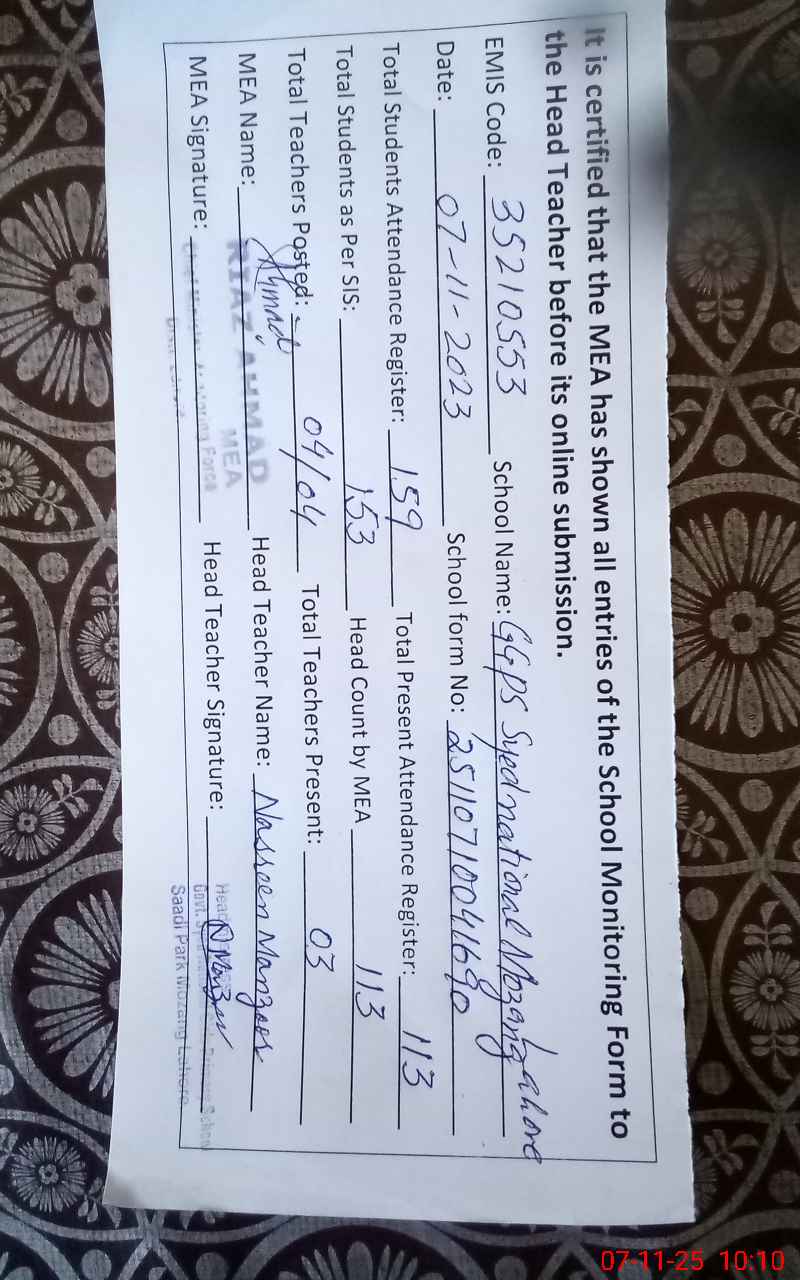 It is certified that the MEA has shown all entries of the School Monitoring Form to
the Head Teacher before its online submission.
EMIS Code: 35210553 School Name: GGPS Syed national Mozang Lahore
Date: 07-11-2023 School form No: 25110710041690
Total Students Attendance Register: 159 Total Present Attendance Register: 113
Total Students as Per SIS: 153 Head Count by MEA 113
Total Teachers Posted: 04/04 Total Teachers Present: 03
MEA Name: RIAZ AHMAD Head Teacher Name: Nasreen Manzoor
MEA
MEA Signature: Ahmad Head Teacher Signature: N Manzoor
Saadi Park Mozang Lahore
07-11-25 10:10